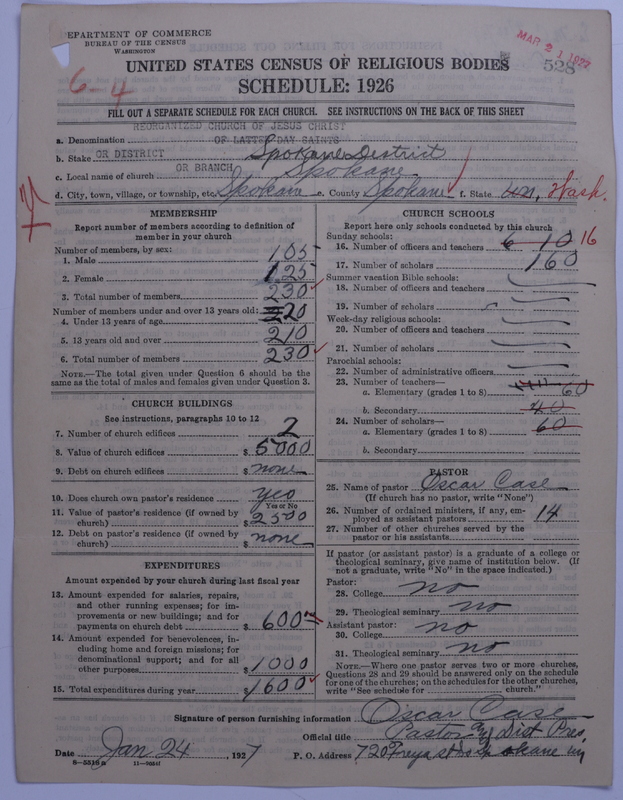 DEPARTMENT OF COMMERCE
BUREAU OF THE CENSUS
WASHINGTON
MAR 21 1927
528
6-4
UNITED STATES CENSUS OF RELIGIOUS BODIES
SCHEDULE: 1926
FILL OUT A SEPARATE SCHEDULE FOR EACH CHURCH. SEE INSTRUCTIONS ON THE BACK OF THIS SHEET
REORGANIZED CHURCH OF JESUS CHRIST
a. Denomination OF LATTER DAY SAINTS
b. State OR DISTRICT Spokane District
c. Local name of church OR BRANCH Spokane
d. City, town, village, or township, etc. Spokane e. County Spokane f. State Wn, Wash.
MEMBERSHIP
Report number of members according to definition of
member in your church
Number of members, by sex:
1. Male 105
2. Female 125
3. Total number of members 230
Number of members under and over 13 years old:
4. Under 13 years of age 20
5. 13 years old and over 210
6. Total number of members 230
NOTE.—The total given under Question 6 should be the
same as the total of males and females given under Question 3.
CHURCH BUILDINGS
See instructions, paragraphs 10 to 12
7. Number of church edifices 2
8. Value of church edifices $ 5000
9. Debt on church edifices $ none
10. Does church own pastor's residence yes
Yes or No
11. Value of pastor's residence (if owned by
church) $ 2500
12. Debt on pastor's residence (if owned by
church) $ none
EXPENDITURES
Amount expended by your church during last fiscal year
13. Amount expended for salaries, repairs,
and other running expenses; for im-
provements or new buildings; and for
payments on church debt $ 600
14. Amount expended for benevolences, in-
cluding home and foreign missions; for
denominational support; and for all
other purposes $ 1000
15. Total expenditures during year $ 1600
CHURCH SCHOOLS
Report here only schools conducted by this church
Sunday schools:
16. Number of officers and teachers 6 10 16
17. Number of scholars 160
Summer vacation Bible schools:
18. Number of officers and teachers
19. Number of scholars
Week-day religious schools:
20. Number of officers and teachers
21. Number of scholars
Parochial schools:
22. Number of administrative officers
23. Number of teachers—
a. Elementary (grades 1 to 8) 60
b. Secondary 40
24. Number of scholars—
a. Elementary (grades 1 to 8) 60
b. Secondary
PASTOR
25. Name of pastor Oscar Case
(If church has no pastor, write "None")
26. Number of ordained ministers, if any, em-
ployed as assistant pastors 14
27. Number of other churches served by the
pastor or his assistants
If pastor (or assistant pastor) is a graduate of a college or
theological seminary, give name of institution below. (If
not a graduate, write "No" in the space indicated.)
Pastor:
28. College no
29. Theological seminary no
Assistant pastor:
30. College no
31. Theological seminary no
NOTE.—Where one pastor serves two or more churches,
Questions 28 and 29 should be answered only on the schedule
for one of the churches; on the schedules for the other churches,
write "See schedule for church."
Signature of person furnishing information Oscar Case
Official title Pastor and Dist Pres.
Date Jan 24 1927 P. O. Address 720 Freya st Spokane wn
8-5518a 11-9084f